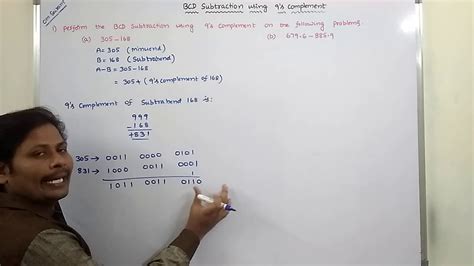 BCD Subtraction using 9's complement
1) Perform the BCD Subtraction using 9's complement on the following problems.
(a) 305-168
(b) 679.6-885.9
A=305 (minuend)
B=168 (Subtrahend)
A-B = 305-168
= 305+(9's complement of 168)
9's Complement of Subtrahend 168 is:
999
-168
+831
305 → 0011 0000 0101
831 → 1000 0011 0001
1
1011 0011 0110